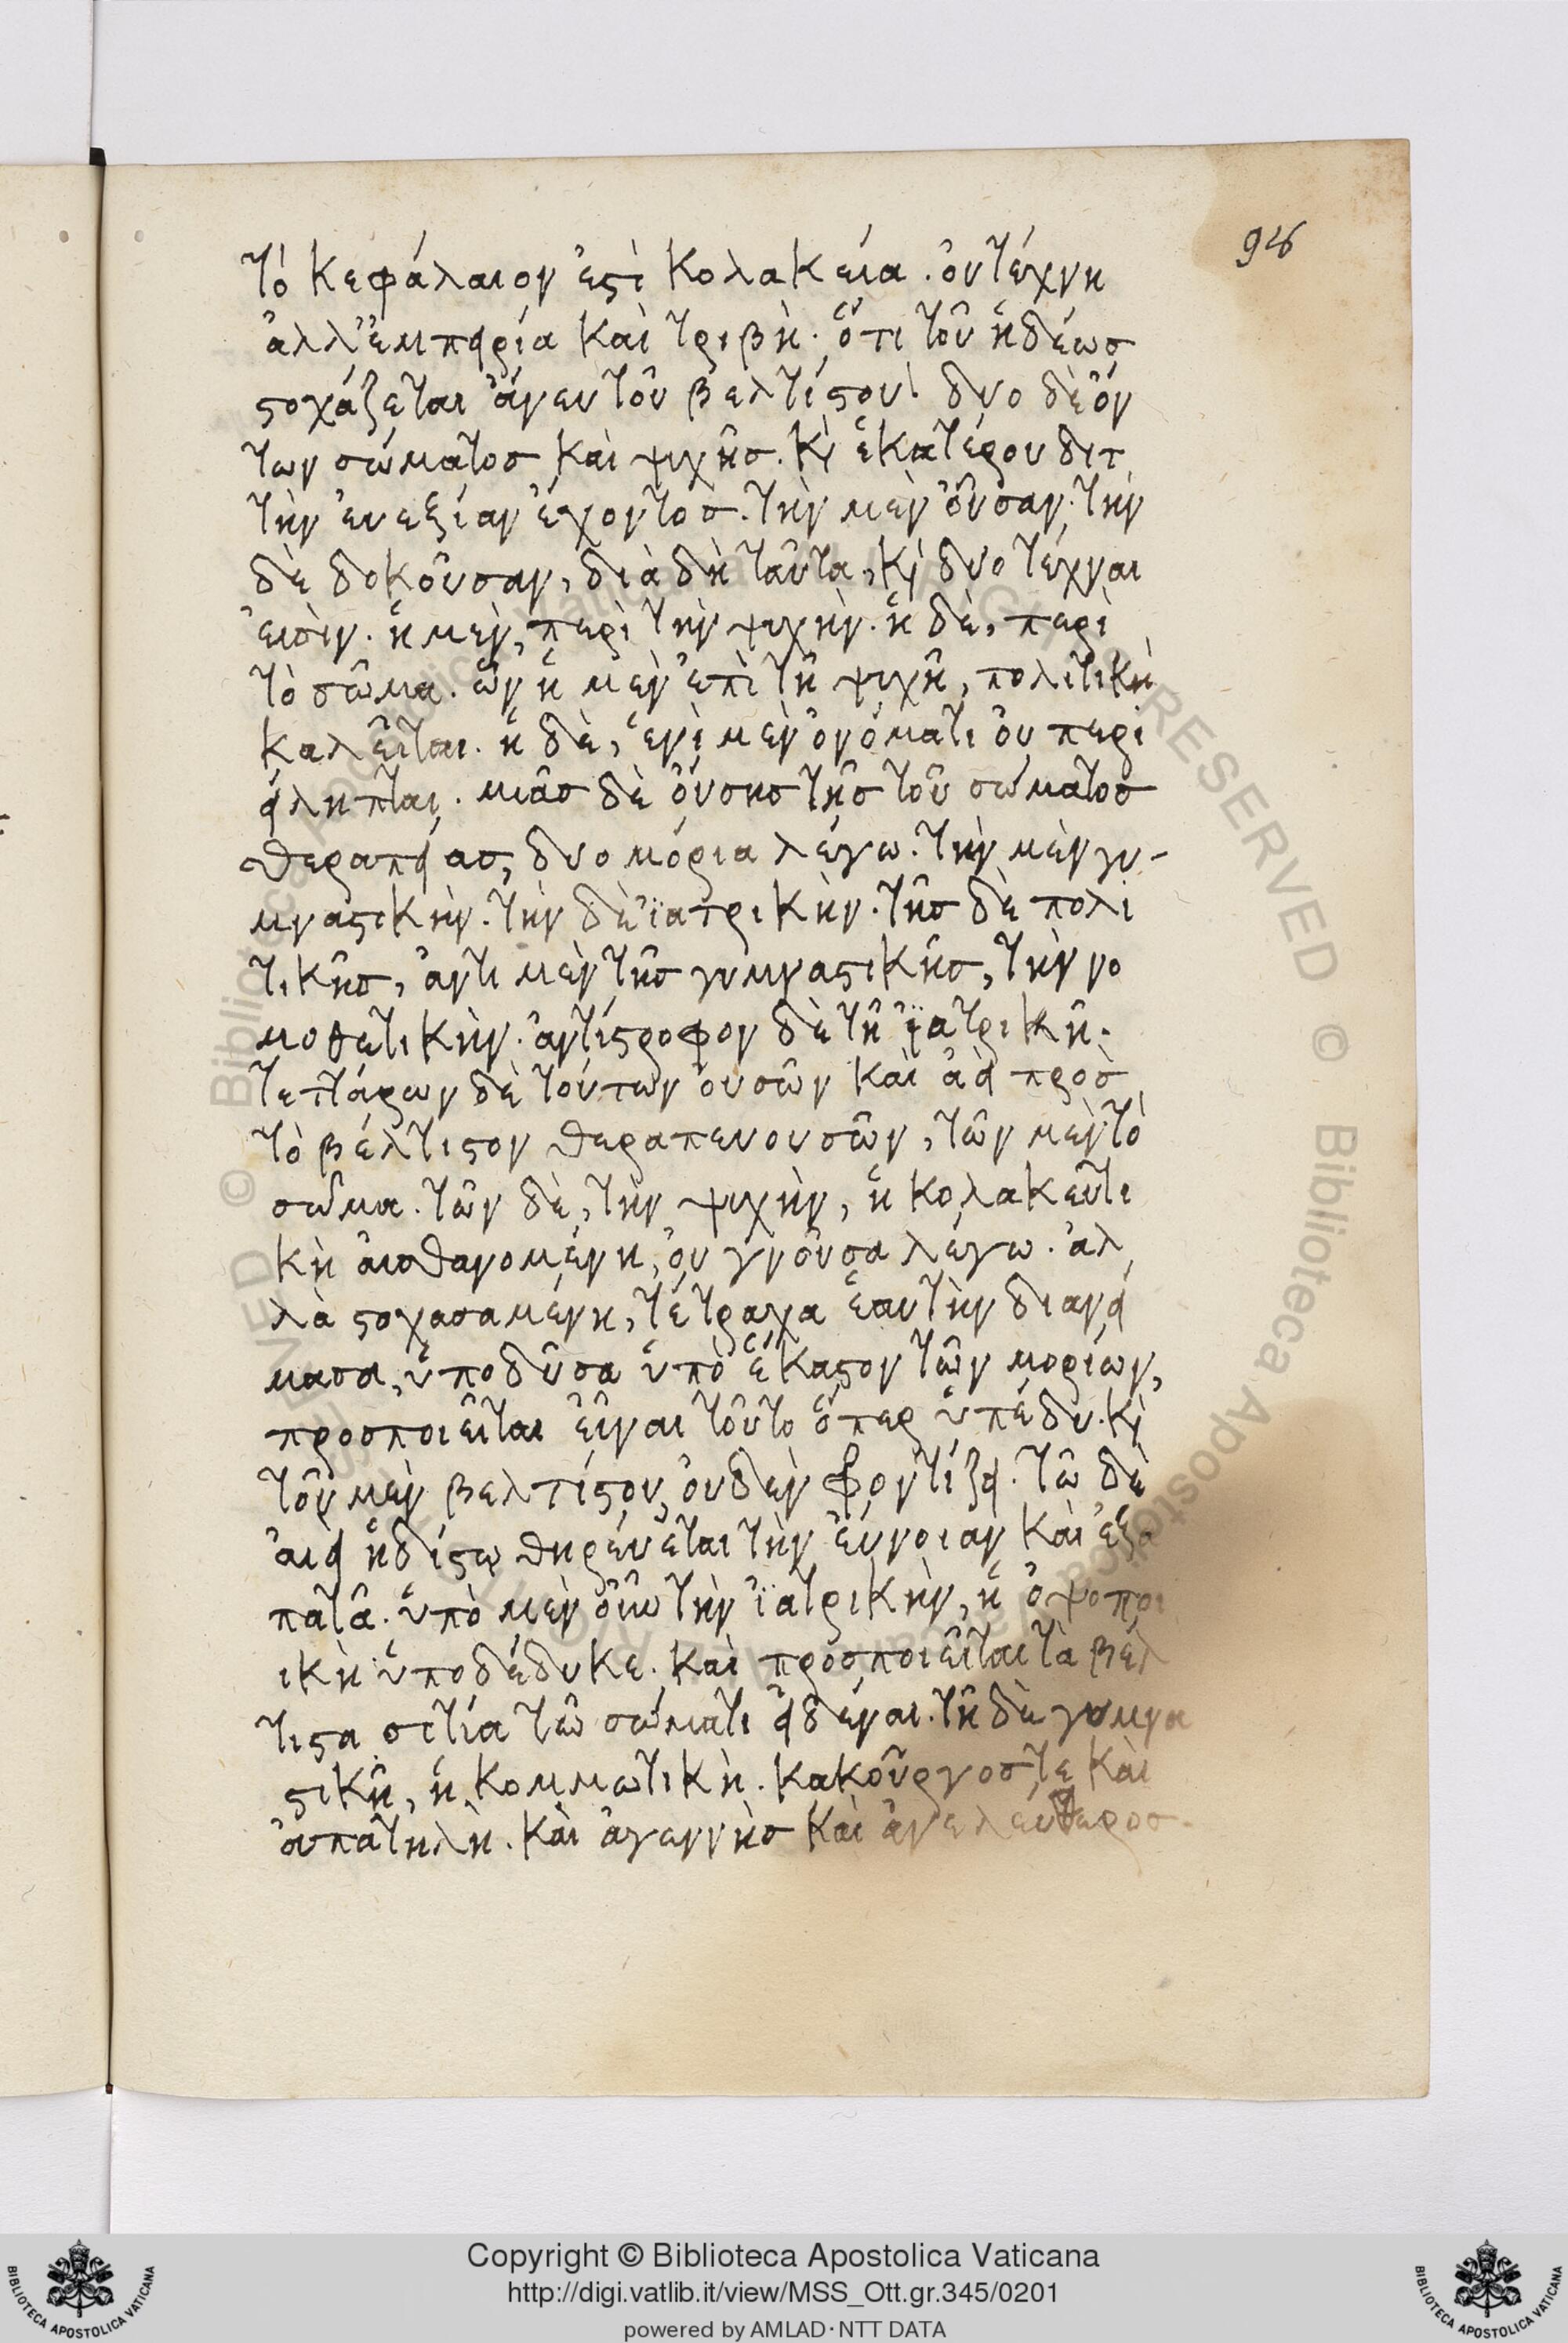 98
τὸ κεφάλαιον ἐστὶ κολακεία. ὀυ τέχνη
ἀλλ' ἐμπειρία καὶ τριβὴ. ὅτι τοῦ ἡδέωσ
στοχάζεται ἄνευ τοῦ βελτίστου. δυο δὲ ὄν
των σώματοσ καὶ ψυχῆσ. κỳ ἑκατέρου διτ
τὴν ἐυεξίαν ἔχοντοσ. τὴν μὲν ὀῦσαν. τὴν
δὲ δοκοῦσαν, διὰ δὴ ταῦτα, κỳ δυο τέχναι
ἐισὶν. ἡ μὲν, περὶ τὴν ψυχὴν. ἡ δὲ, περὶ
τὸ σῶμα. ὧν ἡ μὲν ἐπὶ τῆ ψυχῆ, πολιτικὴ
καλεῖται. ἡ δὲ, ἑνὶ μὲν ὀνόματι ὀυ περι
είληπται. μιᾶσ δὲ ὀύσησ τῆσ τοῦ σώματοσ
θεραπείασ, δυο μόρια λέγω. τὴν μὲν γυ-
μναστικὴν. τὴν δὲ ἰατρικὴν. τῆσ δὲ πολι
τικῆσ, ἀντι μὲν τῆσ γυμναστικῆσ, τὴν νο
μοθετικὴν. ἀντίστροφον δὲ τῆ ἰατρικῆ.
τεττάρων δὲ τούτων ὀυσῶν καὶ ἀεὶ πρὸσ
τὸ βέλτιστον θεραπευουσῶν, τῶν μὲν τὸ
σῶμα. τῶν δὲ, τὴν ψυχὴν, ἡ κολακευτι
κὴ ἀισθανομένη, ὀυ γνοῦσα λέγω. ἀλ
λὰ στοχασαμένη, τέτραχα ἑαυτὴν διανεί
μασα, ὑποδῦσα ὑπὸ ἕκαστον τῶν μορίων,
προσποιεῖται ἐῖναι τοῦτο ὅπερ ὑπέδυ. κỳ
τοῦ μὲν βελτίστου, ὀυδὲν φροντίζει. τῶ δὲ
ἀιεὶ ἡδίστω θηρέυεται τὴν ἔυνοιαν καὶ ἐξα
πατᾶ. ὑπὸ μὲν ὀῦν τὴν ἰατρικὴν, ἡ ὀψοποι
ικὴ ὑποδέδυκε. καὶ προσποιεῖται τὰ βέλ
τιστα σιτία τῶ σώματι εἰδέναι. τῆ δὲ γυμνα
στικῆ, ἡ κομμωτικὴ. κακοῦργοσ τε καὶ
ἀπατηλὴ. καὶ ἀγεννὴσ καὶ ἀνελεύθεροσ.
© Biblioteca Apostolica Vaticana ALL RIGHTS RESERVED
BIBLIOTECA APOSTOLICA VATICANA
Copyright © Biblioteca Apostolica Vaticana
http://digi.vatlib.it/view/MSS_Ott.gr.345/0201
powered by AMLAD·NTT DATA
BIBLIOTECA APOSTOLICA VATICANA